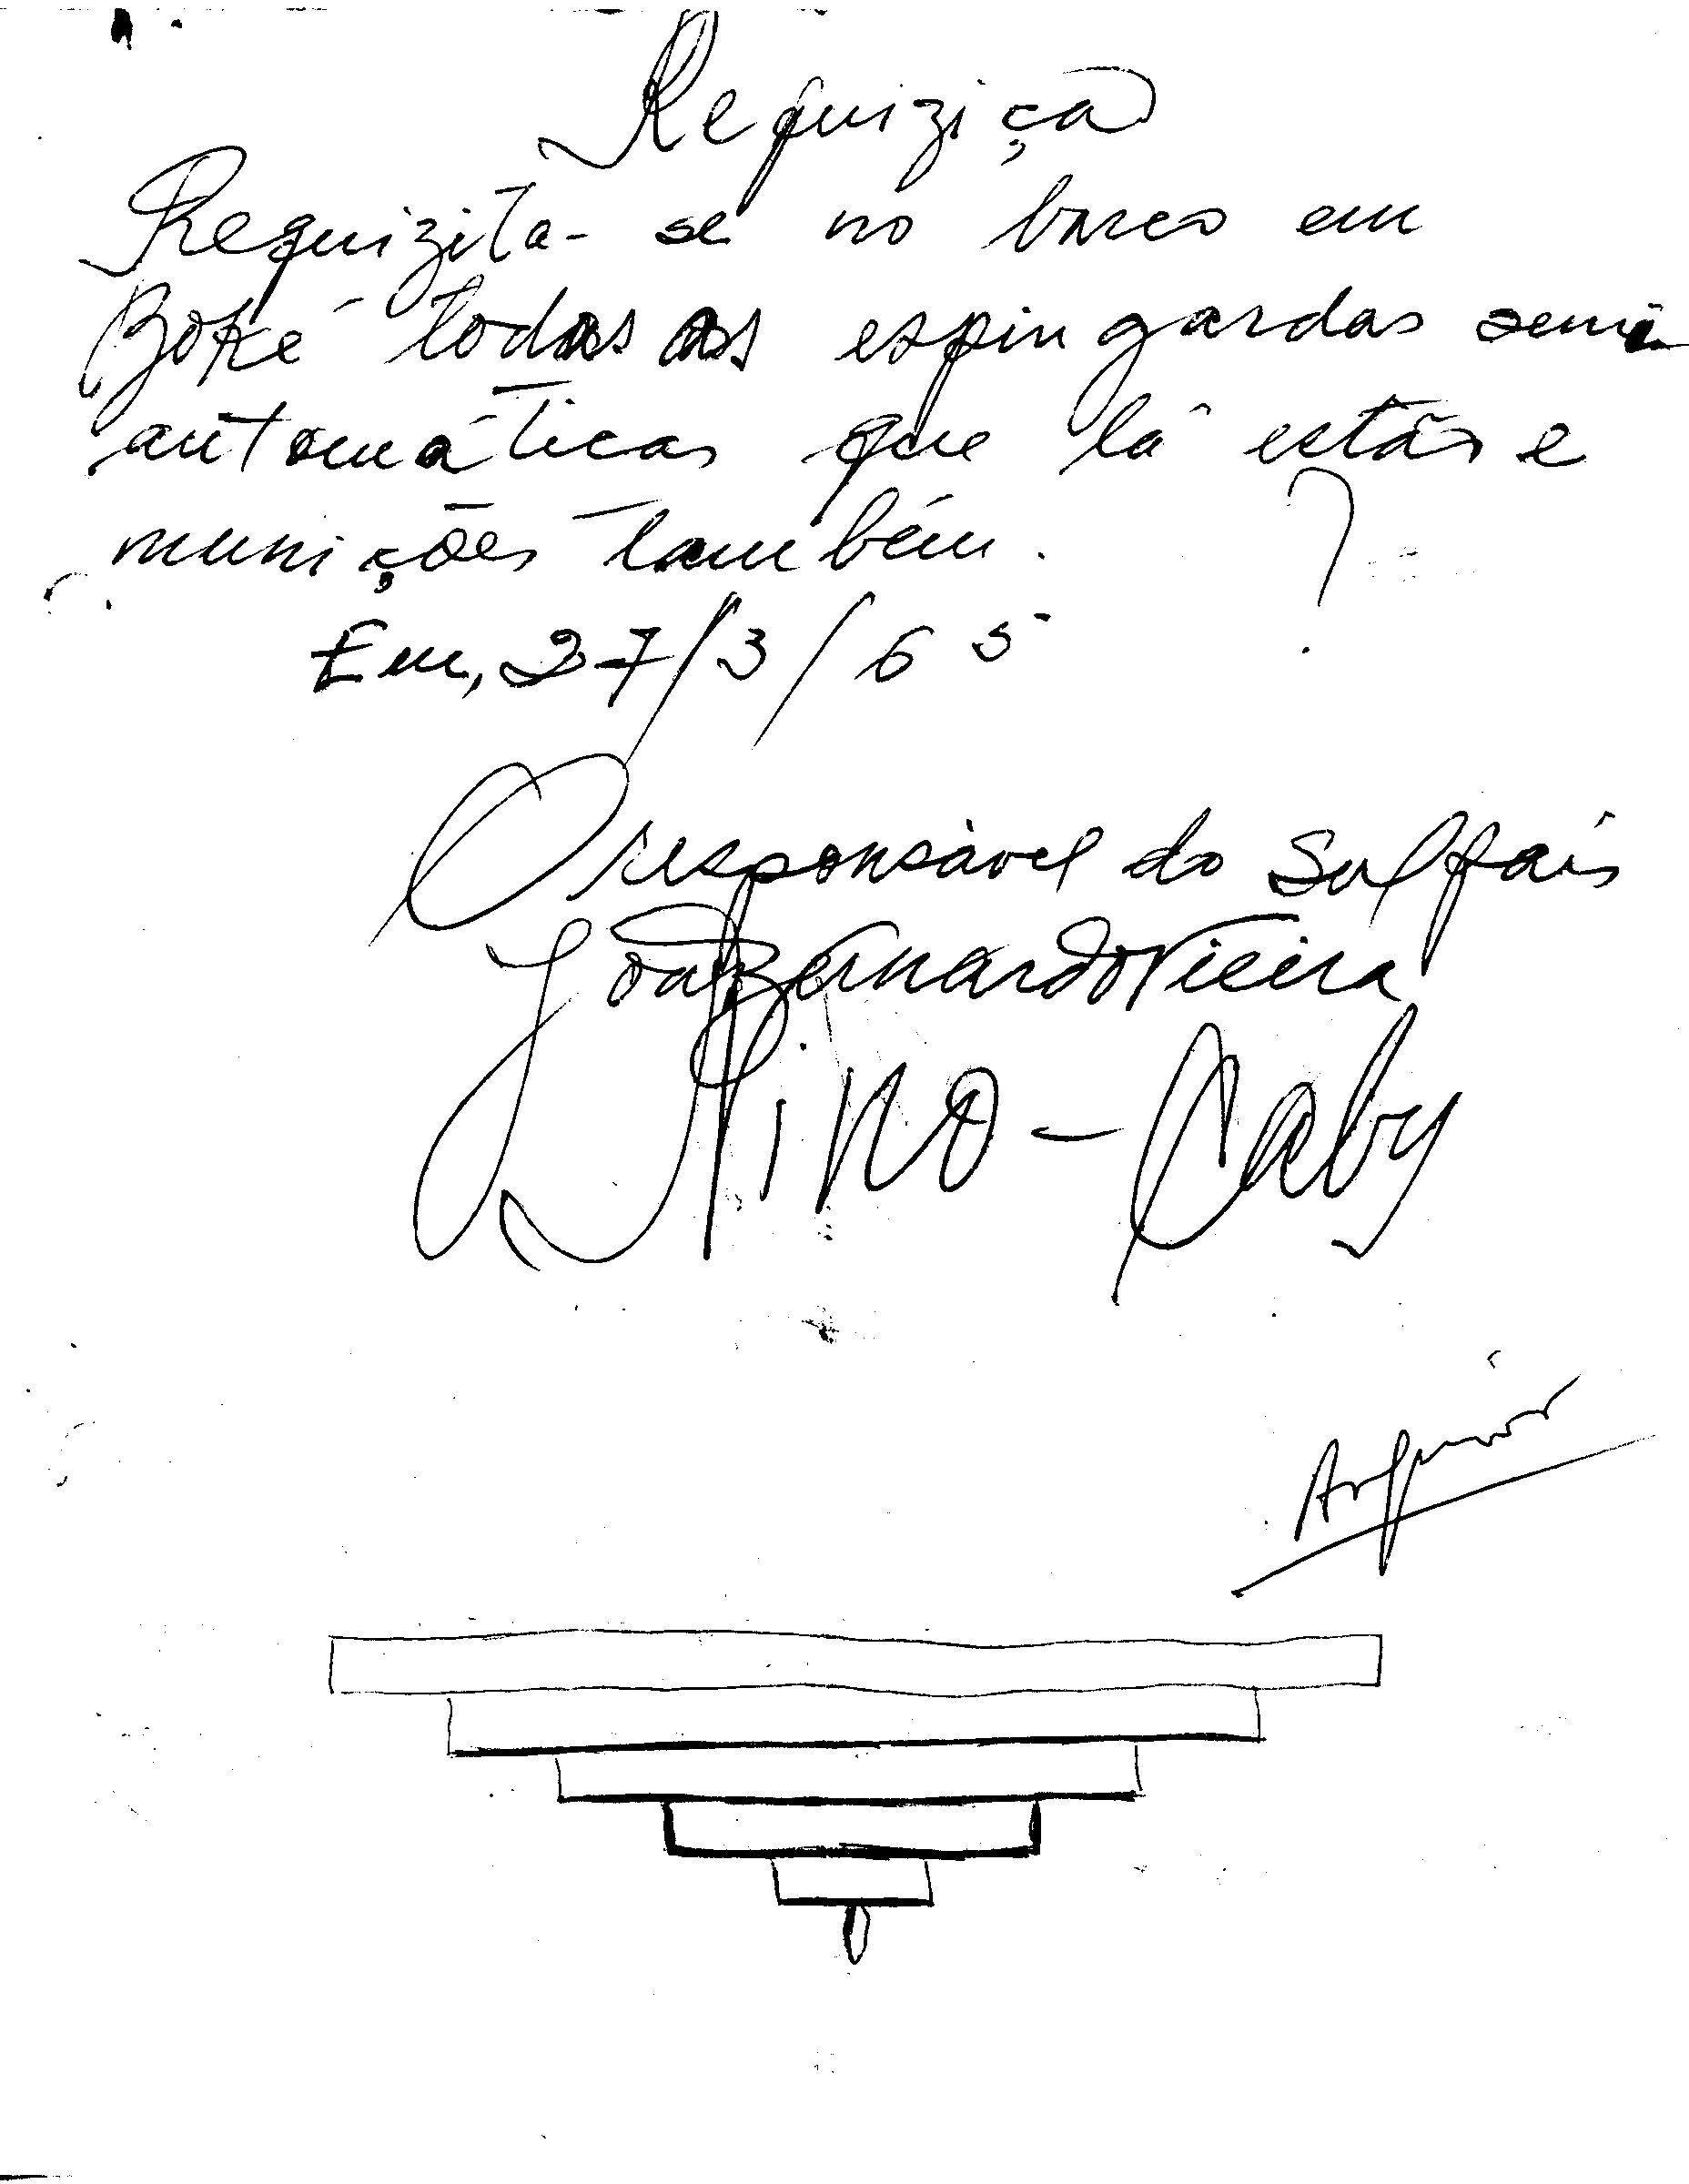 Requizição
Requizita-se no barco em
Boké todas as espingardas semi
automáticas que lá estão e
munições também.
?
Em, 27/3/65
O responsável do Sul país
João Bernardo Vieira
Nino - Caby